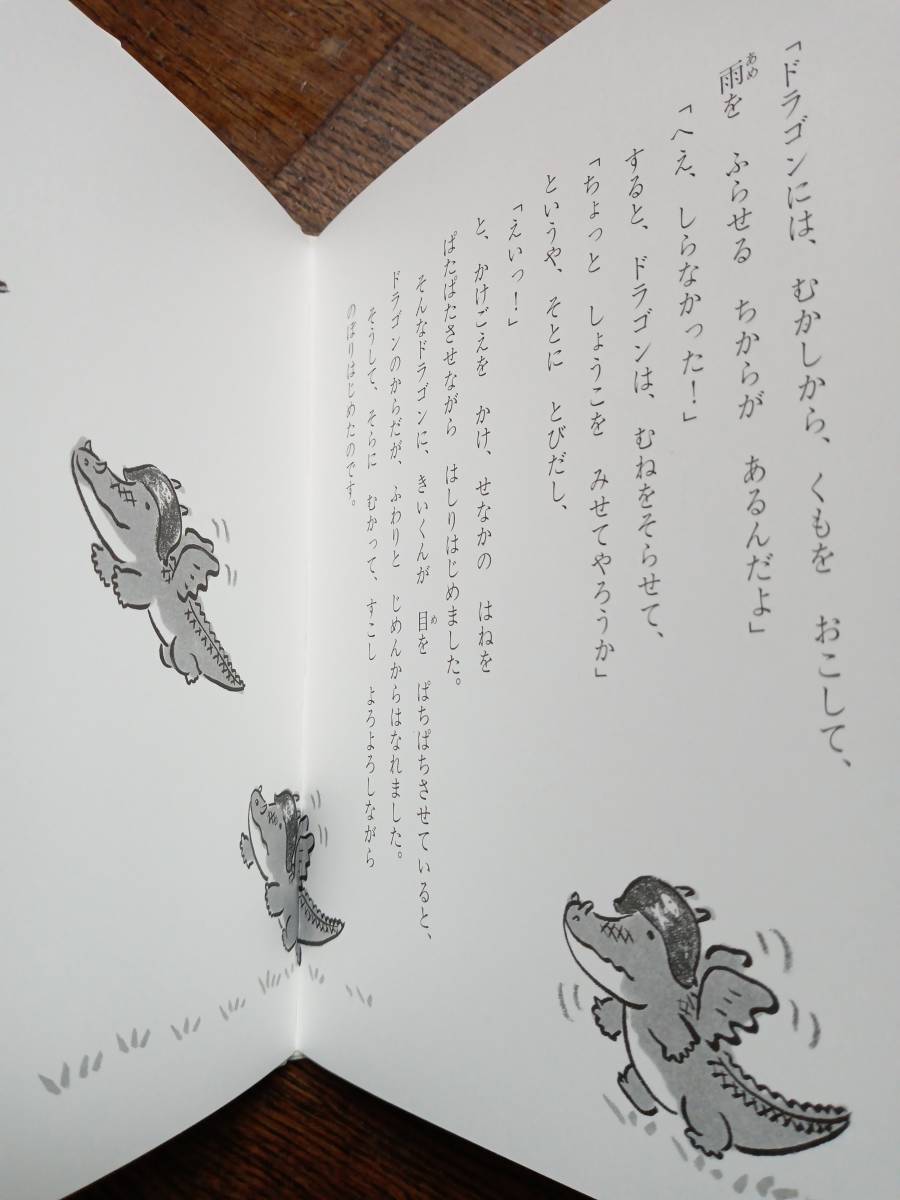 「ドラゴンには、むかしから、くもを　おこして、
雨を　ふらせる　ちからが　あるんだよ」
「へえ、しらなかった！」
すると、ドラゴンは、むねをそらせて、
「ちょっと　しょうこを　みせてやろうか」
というや、そとに　とびだし、
「えいっ！」
と、かけごえを　かけ、せなかの　はねを
ぱたぱたさせながら　はしりはじめました。
そんなドラゴンに、きいくんが　目を　ぱちぱちさせていると、
ドラゴンのからだが、ふわりと　じめんからはなれました。
そうして、そらに　むかって、すこし　よろよろしながら
のぼりはじめたのです。